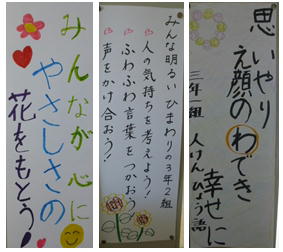 みんなが心に
やさしさの
花をもとう!
みんな明るいひまわりの3年2組
人の気持ちを考えよう!
ふわふわ言葉をつかおう
声をかけ合おう!
思いやり
え顔のわでき
幸せに
三年一組 人けんひょう語